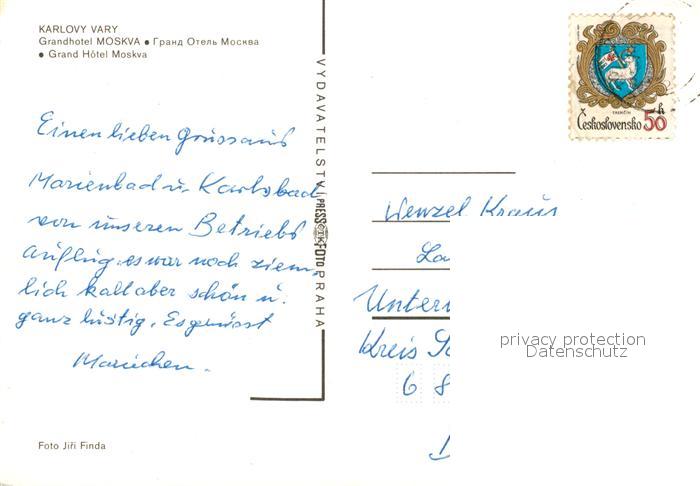 KARLOVY VARY
Grandhotel MOSKVA ● Гранд Отель Москва
● Grand Hôtel Moskva
Einen lieben Grüss aus
Marienbad u. Karlsbad
von unseren Betriebs
Ausflug. es war noch ziem
lich kalt aber schön u.
ganz lustig. Es grüsst
Mariechen.
Foto Jiří Finda
VYDAVATELSTVÍ PRESSFOTO PRAHA
TRENČÍN
Československo 50 h
Wenzel Kraus
La
Untern
Kreis S
6 8
privacy protection
Datenschutz